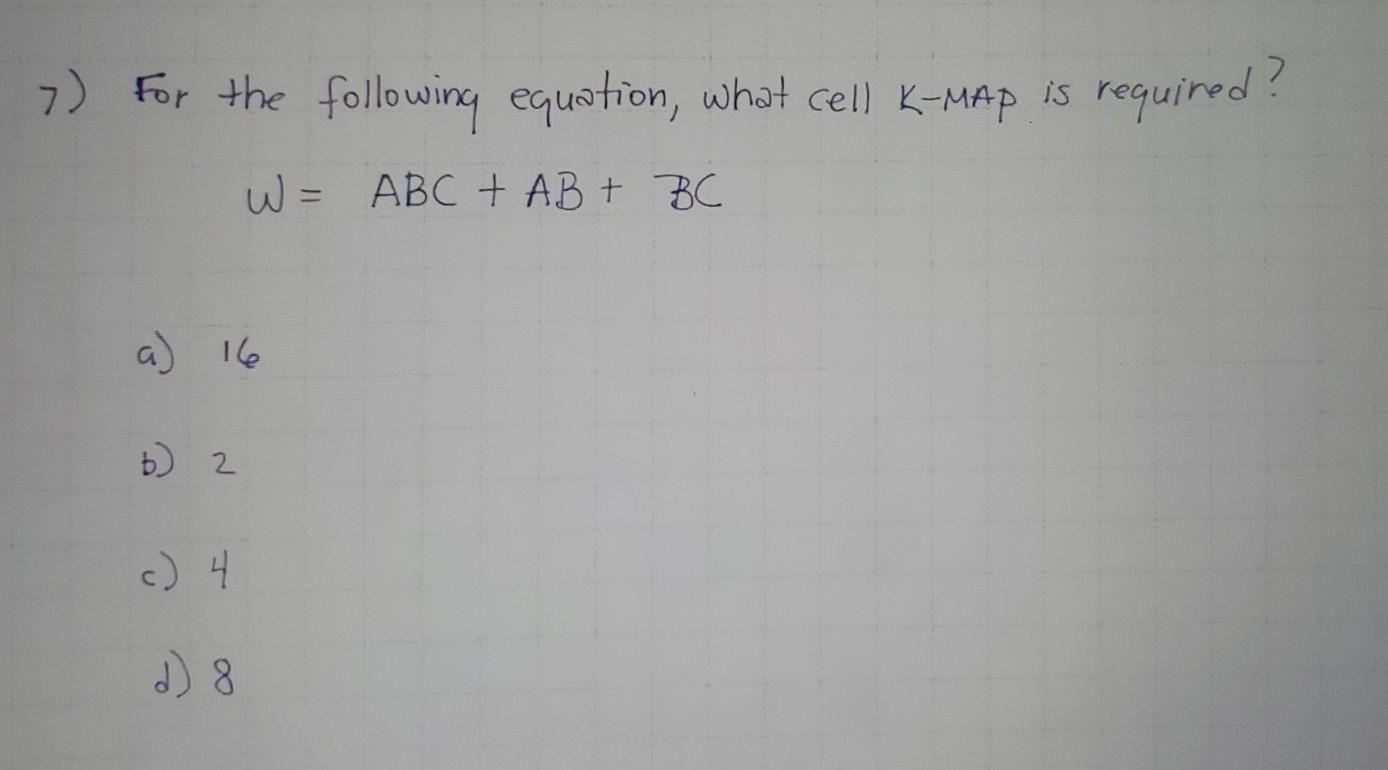 7) For the following equation, what cell K-MAP is required?
W = ABC + AB + BC
a) 16
b) 2
c) 4
d) 8